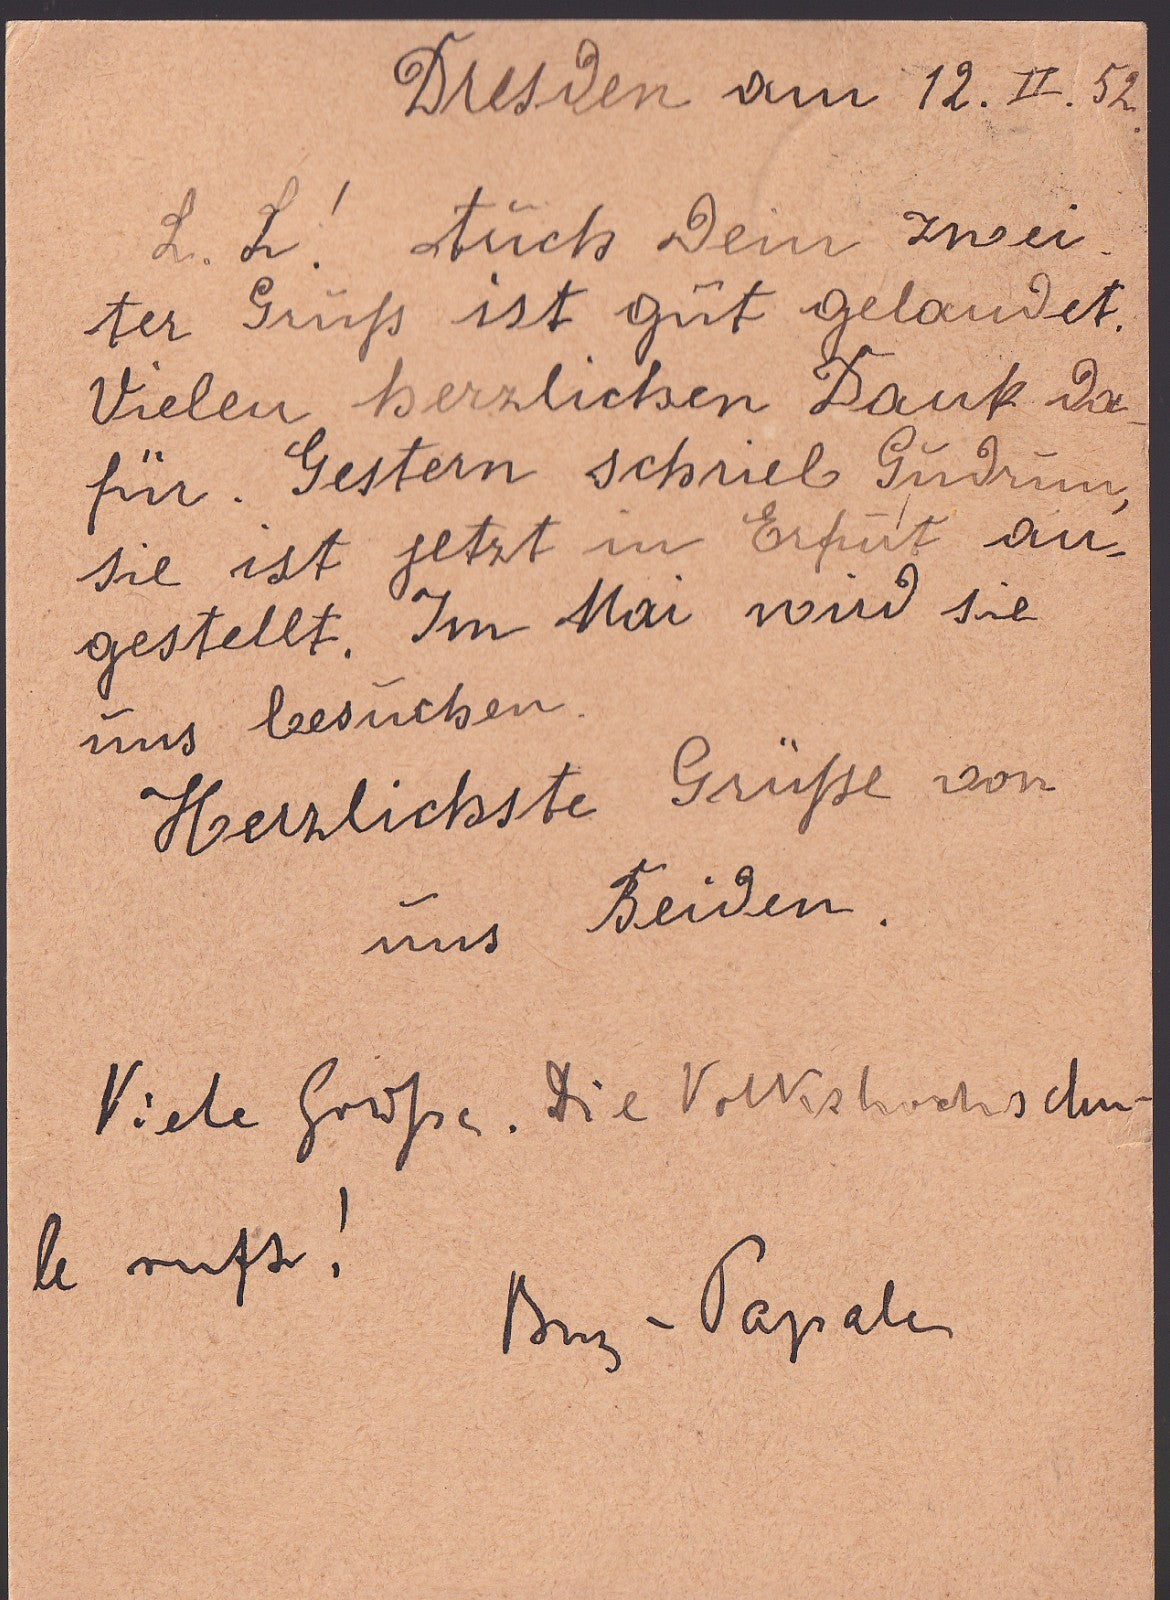 Dresden am 12. II. 52.
L. L.! Auch Dein zwei-
ter Gruß ist gut gelandet.
Vielen herzlichen Dank da-
für. Gestern schrieb Gudrun,
sie ist jetzt in Erfurt an-
gestellt. Im Mai wird sie
uns besuchen.
Herzlichste Grüße von
uns Beiden.
Viele Grüße. Die Volkshochschu-
le ruft!